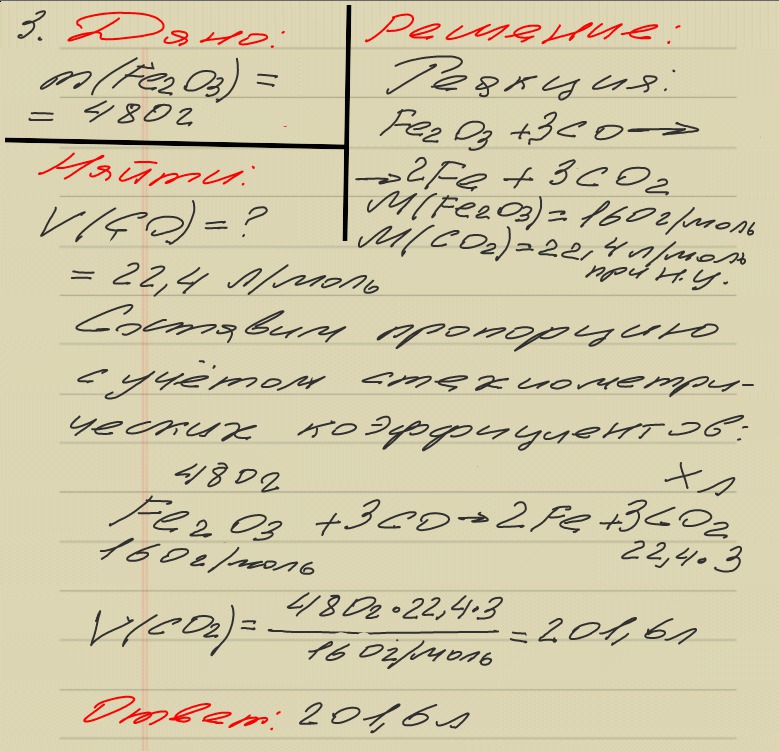 3. Дано:
m(Fe2O3) =
= 480г
Найти:
V(CO) = ?
Решение:
Реакция:
Fe2O3 + 3CO →
→ 2Fe + 3CO2
M(Fe2O3) = 160г/моль
M(CO2) = 22,4 л/моль
при н.у.
= 22,4 л/моль
Составим пропорцию
с учётом стехиометри-
ческих коэффициентов:
480г X л
Fe2O3 + 3CO → 2Fe + 3CO2
160г/моль 22,4•3
V(CO2) = 480г•22,4•3 / 160г/моль = 201,6л
Ответ: 201,6л